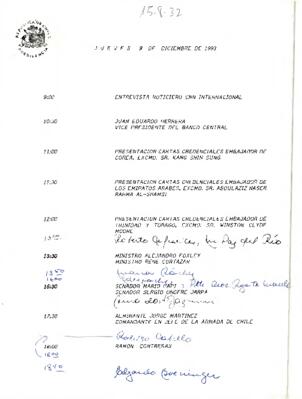 15-8-32
REPUBLICA DE CHILE
PRESIDENCIA
JUEVES 9 DE DICIEMBRE DE 1993
9:00 ENTREVISTA NOTICIERO CNN INTERNACIONAL
10:30 JUAN EDUARDO HERRERA
VICE PRESIDENTE DEL BANCO CENTRAL
11:00 PRESENTACION CARTAS CREDENCIALES EMBAJADOR DE
COREA, EXCMO. SR. KANG SHIN SUNG
11:30 PRESENTACION CARTAS CREDENCIALES EMBAJADOR DE
LOS EMIRATOS ARABES, EXCMO. SR. ABDULAZIZ NASER
RAHMA AL-SHAMSI
12:00 PRESENTACION CARTAS CREDENCIALES EMBAJADOR DE
TRINIDAD Y TOBAGO, EXCMO. SR. WINSTON CLYDE
MOORE
Roberto Cifuentes, M Paz del Río
13:30 MINISTRO ALEJANDRO FOXLEY
MINISTRO RENE CORTAZAR
16:30 SENADOR MARIO PAPI
SENADOR SERGIO ONOFRE JARPA
17:30 ALMIRANTE JORGE MARTINEZ
COMANDANTE EN JEFE DE LA ARMADA DE CHILE
Castillo
RAMON CONTRERAS
Edgardo Boeninger